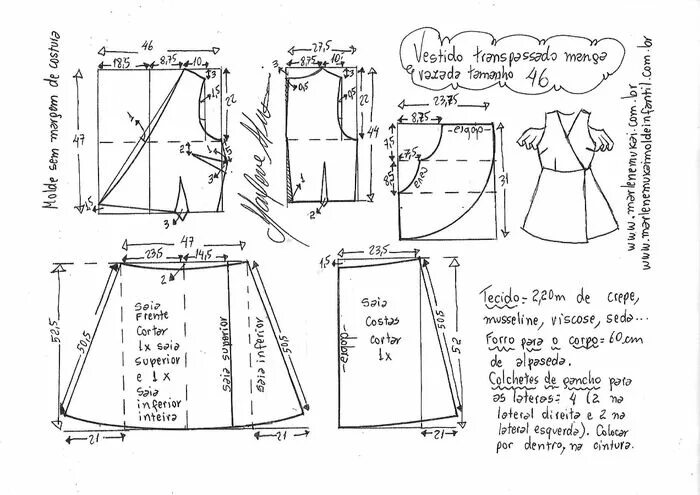 Molde sem margem de costura
46
18,5
8,75
10
3
1,5
22
47
1
2
1
1,5
3
1,5
3
27,5
3
8,75
10
3
0,5
0,5
22
44
2
Marlene Mukai
Vestido transpassado manga
vazada tamanho 46
23,75
8,75
dobra
7,5
7,5
8,5
31
www.marlenemukai.com.br
www.marlenemukaimoldeinfantil.com.br
47
23,5
14,5
2
52,5
50,5
Saia
Frente
Cortar
1x saia
superior
e 1 x
Saia
inferior
inteira
saia superior
saia inferior
50,5
21
21
23,5
1,5
dobra
Saia
Costas
cortar
1x
50,5
52
21
Tecido = 2,20m de crepe,
musseline, viscose, seda...
Forro para o corpo = 60cm
de alpaseda.
Colchetes de gancho para
as laterais = 4 (2 na
lateral direita e 2 na
lateral esquerda). Colocar
por dentro, na cintura.